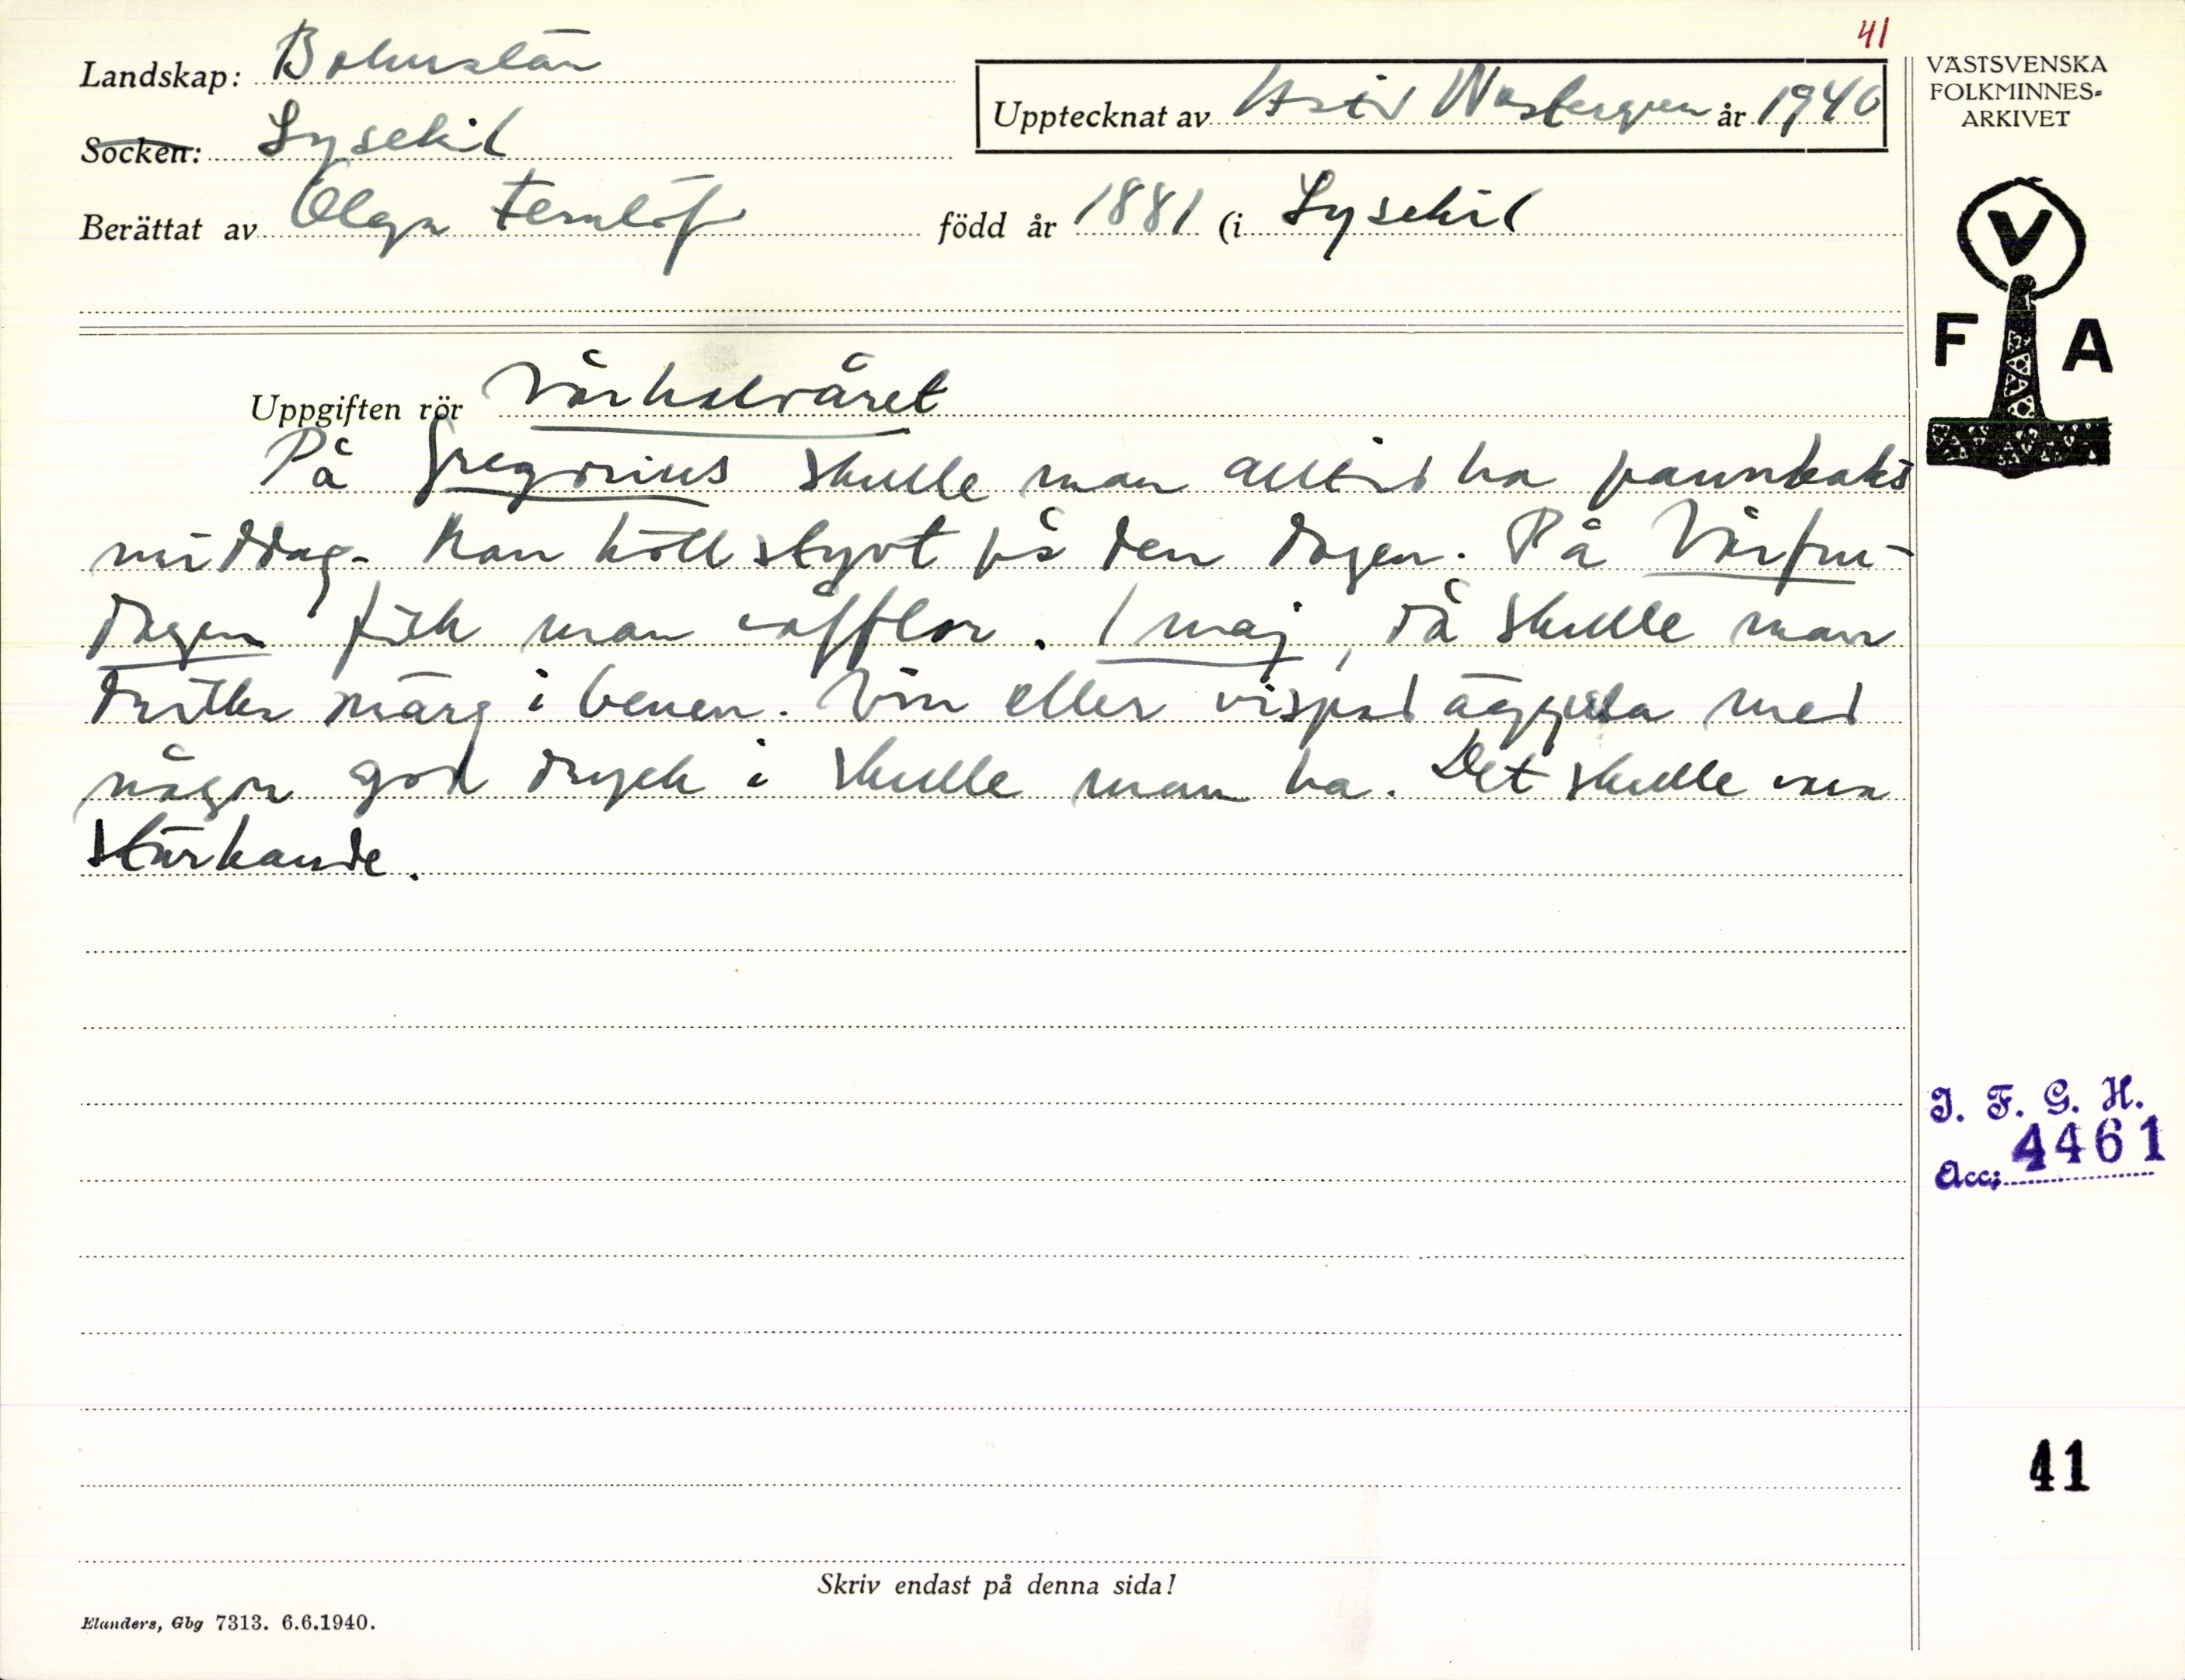 41
Landskap: Bohuslän
Upptecknat av Astrid Westergren år 1940
VÄSTSVENSKA
FOLKMINNES-
ARKIVET
Socken: Lysekil
Berättat av Olga Fernlöf född år 1881 (i Lysekil
V
F A
Uppgiften rör Vårhalvåret
På Gregorius skulle man alltid ha pannkaks
middag. Man höll styvt på den dagen. På Vårfru-
dagen fick man våfflor. 1 maj, då skulle man
dricka märg i benen. Vin eller vispad äggula med
någon god dryck i skulle man ha. Det skulle vara
stärkande.
I. F. G. H.
Acc: 4461
41
Skriv endast på denna sida!
Elanders, Gbg 7313. 6.6.1940.